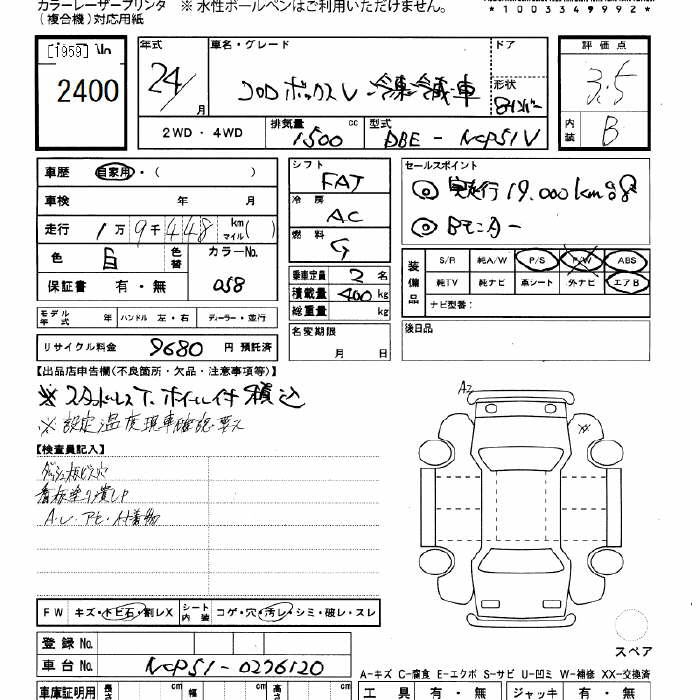 カラーレーザープリンタ ※ 水性ボールペンはご利用いただけません。
(複合機)対応用紙
*1003349992*
[1959]
2400
年式 24/月
車名・グレード プロボックスV 冷凍冷蔵車
ドア
形状
2WD・4WD
排気量 1500 cc
型式 DBE-NCP51V
評価点 3.5
内装 B
車歴 自家用・( )
車検 年 月
走行 1万9千448 km マイル( )
色 白 色替 カラーNo. 058
保証書 有・無
シフト FAT
冷房 AC
燃料 G
乗車定員 2名
積載量 400 kg
総重量 kg
セールスポイント
◎ 実走行19,000km
◎ Bモニター
装備品 S/R 純A/W P/S P/W ABS
純TV 純ナビ 革シート 外ナビ エアB
ナビ型番:
モデル年式 年 ハンドル 左・右 ディーラー・並行
名変期限 月 日
後日品
リサイクル料金 9680 円 預託済
【出品店申告欄(不良箇所・欠品・注意事項等)】
※スタッドレスT.ホイール付 積込
※設定温度現車確認要ス
【検査員記入】
ダッシュ板ビス穴
看板塗り潰しP
A.U.アセ・付着物
A2
FW キズ・トビ石・割レX シート内装 コゲ・穴・汚レ・シミ・破レ・スレ
スペア
登録No.
車台No. NCP51-0276120
A-キズ C-腐食 E-エクボ S-サビ U-凹ミ W-補修 XX-交換済
車庫証明用 長さ cm 幅 cm 高さ cm
工具 有・無 ジャッキ 有・無